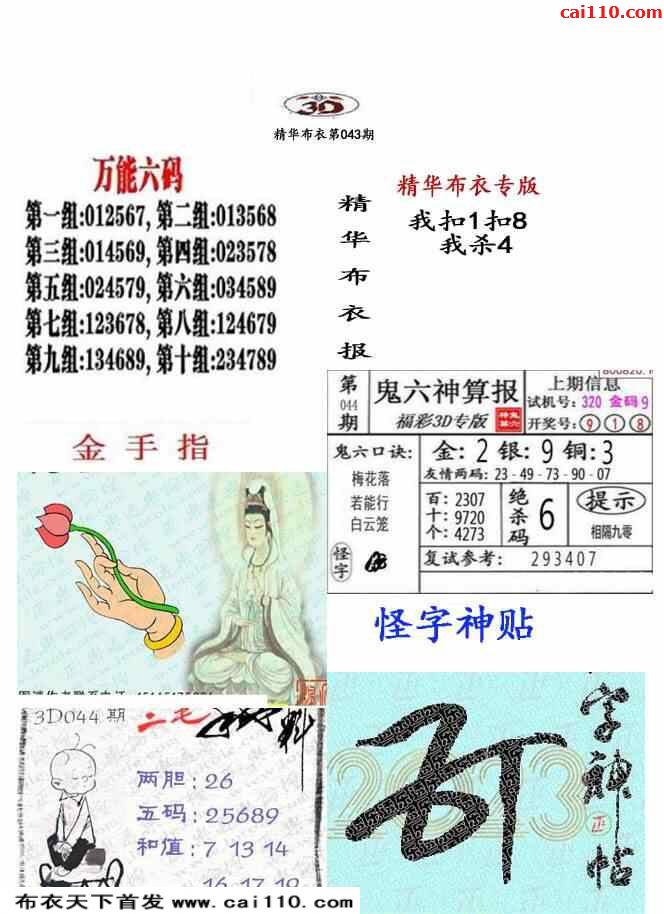 cai110.com
3D
精华布衣第043期
万能六码
第一组:012567, 第二组:013568
第三组:014569, 第四组:023578
第五组:024579, 第六组:034589
第七组:123678, 第八组:124679
第九组:134689, 第十组:234789
精华布衣报
精华布衣专版
我扣1扣8
我杀4
第044期
鬼六神算报
福彩3D专版
上期信息
试机号: 320 金码9
开奖号: 9 1 8
鬼六口诀:
梅花落
若能行
白云笼
怪字
金: 2 银: 9 铜: 3
友情两码: 23-49-73-90-07
百: 2307
十: 9720
个: 4273
绝杀码 6
提示
相隔九零
复试参考: 293407
金手指
怪字神贴
3D044期
两胆: 26
五码: 25689
和值: 7 13 14
16 17 19
字神帖
2023
布衣天下首发 www.cai110.com